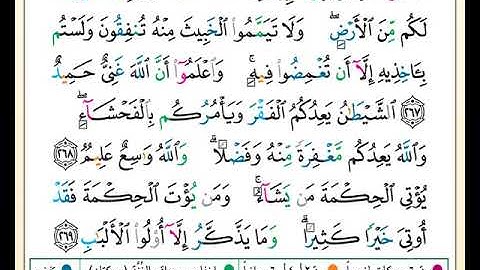 لَكُم مِّنَ الْأَرْضِ ۖ وَلَا تَيَمَّمُوا الْخَبِيثَ مِنْهُ تُنفِقُونَ وَلَسْتُم
بِـَٔاخِذِيهِ إِلَّآ أَن تُغْمِضُوا فِيهِ ۚ وَاعْلَمُوٓا أَنَّ اللَّهَ غَنِىٌّ حَمِيدٌ
﴿٢٦٧﴾ الشَّيْطَٰنُ يَعِدُكُمُ الْفَقْرَ وَيَأْمُرُكُم بِالْفَحْشَآءِ ۖ
وَاللَّهُ يَعِدُكُم مَّغْفِرَةً مِّنْهُ وَفَضْلًا ۗ وَاللَّهُ وَٰسِعٌ عَلِيمٌ ﴿٢٦٨﴾
يُؤْتِى الْحِكْمَةَ مَن يَشَآءُ ۚ وَمَن يُؤْتَ الْحِكْمَةَ فَقَدْ
أُوتِىَ خَيْرًا كَثِيرًا ۗ وَمَا يَذَّكَّرُ إِلَّآ أُولُوا الْأَلْبَٰبِ ﴿٢٦٩﴾